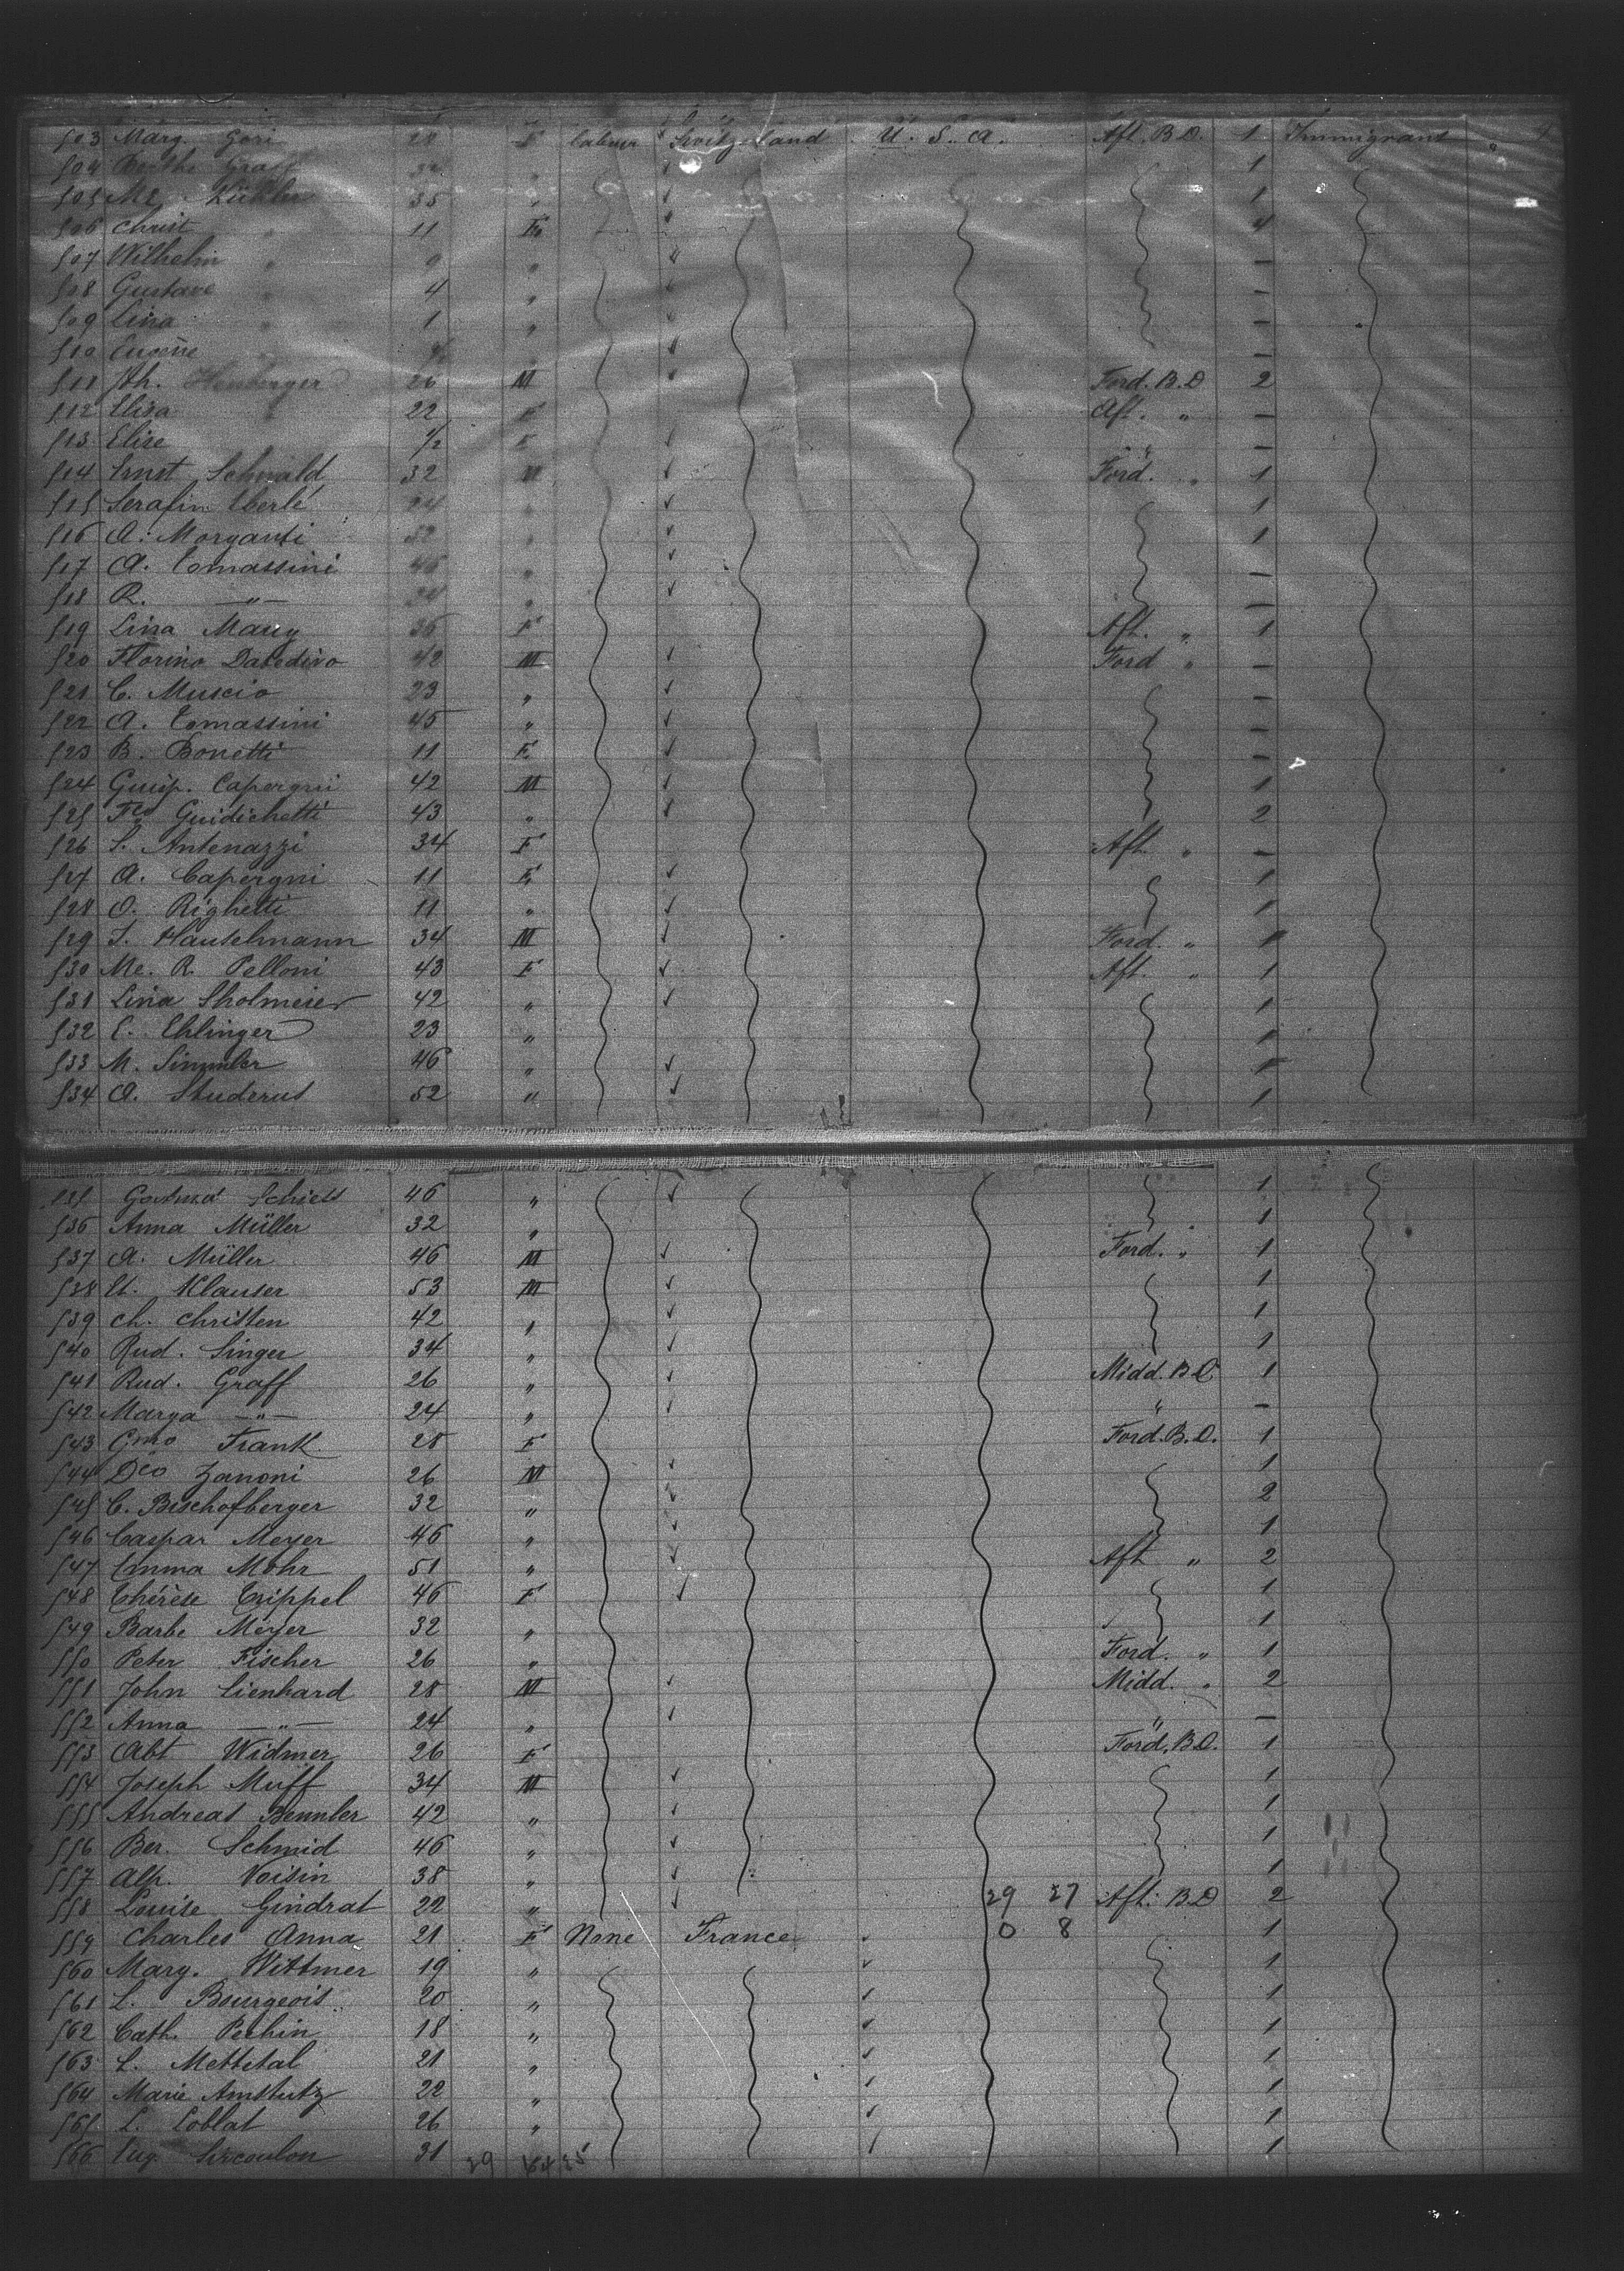 503 Marg. Gori 28 F labour Switzerland U. S. A. Aft. B.D. 1 Immigrant
504 Berthe Graff " 1
505 Me. 35 " 1
506 Christ " 11 F. 4
507 Wilhelm " 9 " —
508 Gustave 4 " —
509 Lina " 1 " —
510 Eugène —
511 Jh. Heuberger 26 M Ford. B.D 2
512 Elisa 22 F Aft. " —
513 Elise 1/2 F " —
514 Ernst Schwald 32 M Ford. " 1
515 Serafin Eberlé 24 " 1
516 A. Morganti 32 " 1
517 A. Tomassini 46 " —
518 R. —"— 24 " —
519 Lina Maug 36 F Aft. " 1
520 Florino Daledivo 42 M Ford " —
521 C. Muscio 23 " —
522 A. Tomassini 45 " —
523 B. Bonetti 11 F. —
524 Guisp. Capergnii 42 M 1
525 Fco Guidichetti 43 " 2
526 S. Antenazzi 34 F Aft. " —
527 A. Capergni 11 F. 1
528 O. Righetti 11 " 1
529 J. Hauselmann 34 M Ford. " 1
530 Me. R. Pelloni 43 F Aft. " 1
531 Lina Sholmeier 42 " 1
532 E. Ehlinger 23 " 1
533 M. Simmler 46 " 1
534 A. Studerus 52 " 1
535 Schiess 46 " 1
536 Anna Müller 32 " 1
537 A. Müller 46 M Ford. " 1
538 Et. Klauser 53 M 1
539 Ch. Christen 42 " 1
540 Rud. Singer 34 " 1
541 Rud. Graff 26 " Midd. B.D 1
542 Marga —"— 24 " " —
543 Gmo Frank 28 F Ford. B.D. 1
544 Dco Zanoni 26 M 1
545 C. Bischofberger 32 " 2
546 Caspar Meyer 46 " 1
547 Emma Mohr 51 " Aft " 2
548 Thérèse Trippel 46 F 1
549 Barbe Meyer 32 " 1
550 Peter Fischer 26 " Ford. " 1
551 John Lienhard 28 M Midd. " 2
552 Anna —"— 24 " " —
553 Abt Widmer 26 F Ford. B.D. 1
554 Joseph Muff 34 M 1
555 Andreas Bennler 42 " 1
556 Ber. Schmid 46 " 1
557 Alp. Voisin 38 " 1
558 Louise Gindrat 22 " 29 27 Aft. B.D 2
559 Charles Anna 21 F None France 0 8 1
560 Marg. Wittmer 19 " 1
561 L. Bourgeois 20 " 1
562 Cath. Pechin 18 " 1
563 L. Mettetal 21 " 1
564 Marie Amstutz 22 " 1
565 L. Loblat 26 " 1
566 Eug. Sircoulon 31 29 1